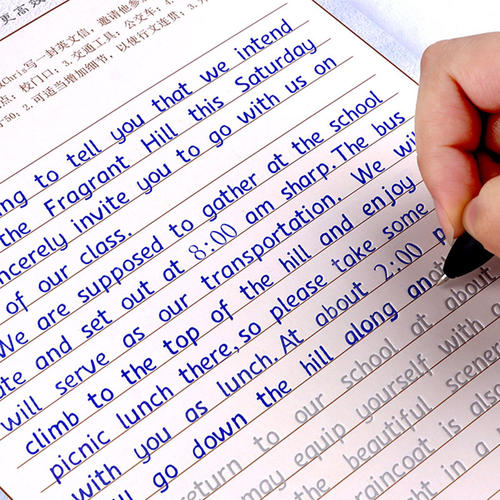 更高效
Chris写一封英文信，邀请他参
点：校门口；3.交通工具：公交车；4.
50；2.可适当增加细节，以使行文连贯；3.
ing to tell you that we intend
the Fragrant Hill this Saturday
ncerely invite you to go with us on
of our class.
We are supposed to gather at the school
ate and set out at 8:00 am sharp. The bus
will serve as our transportation. We wil
climb to the top of the hill and enjoy
picnic lunch there, so please take some
with you as lunch. At about 2:00 p
go down the hill along anoth
return to our school at about
may equip yourself with a
the beautiful sceneri
raincoat is also
t in a